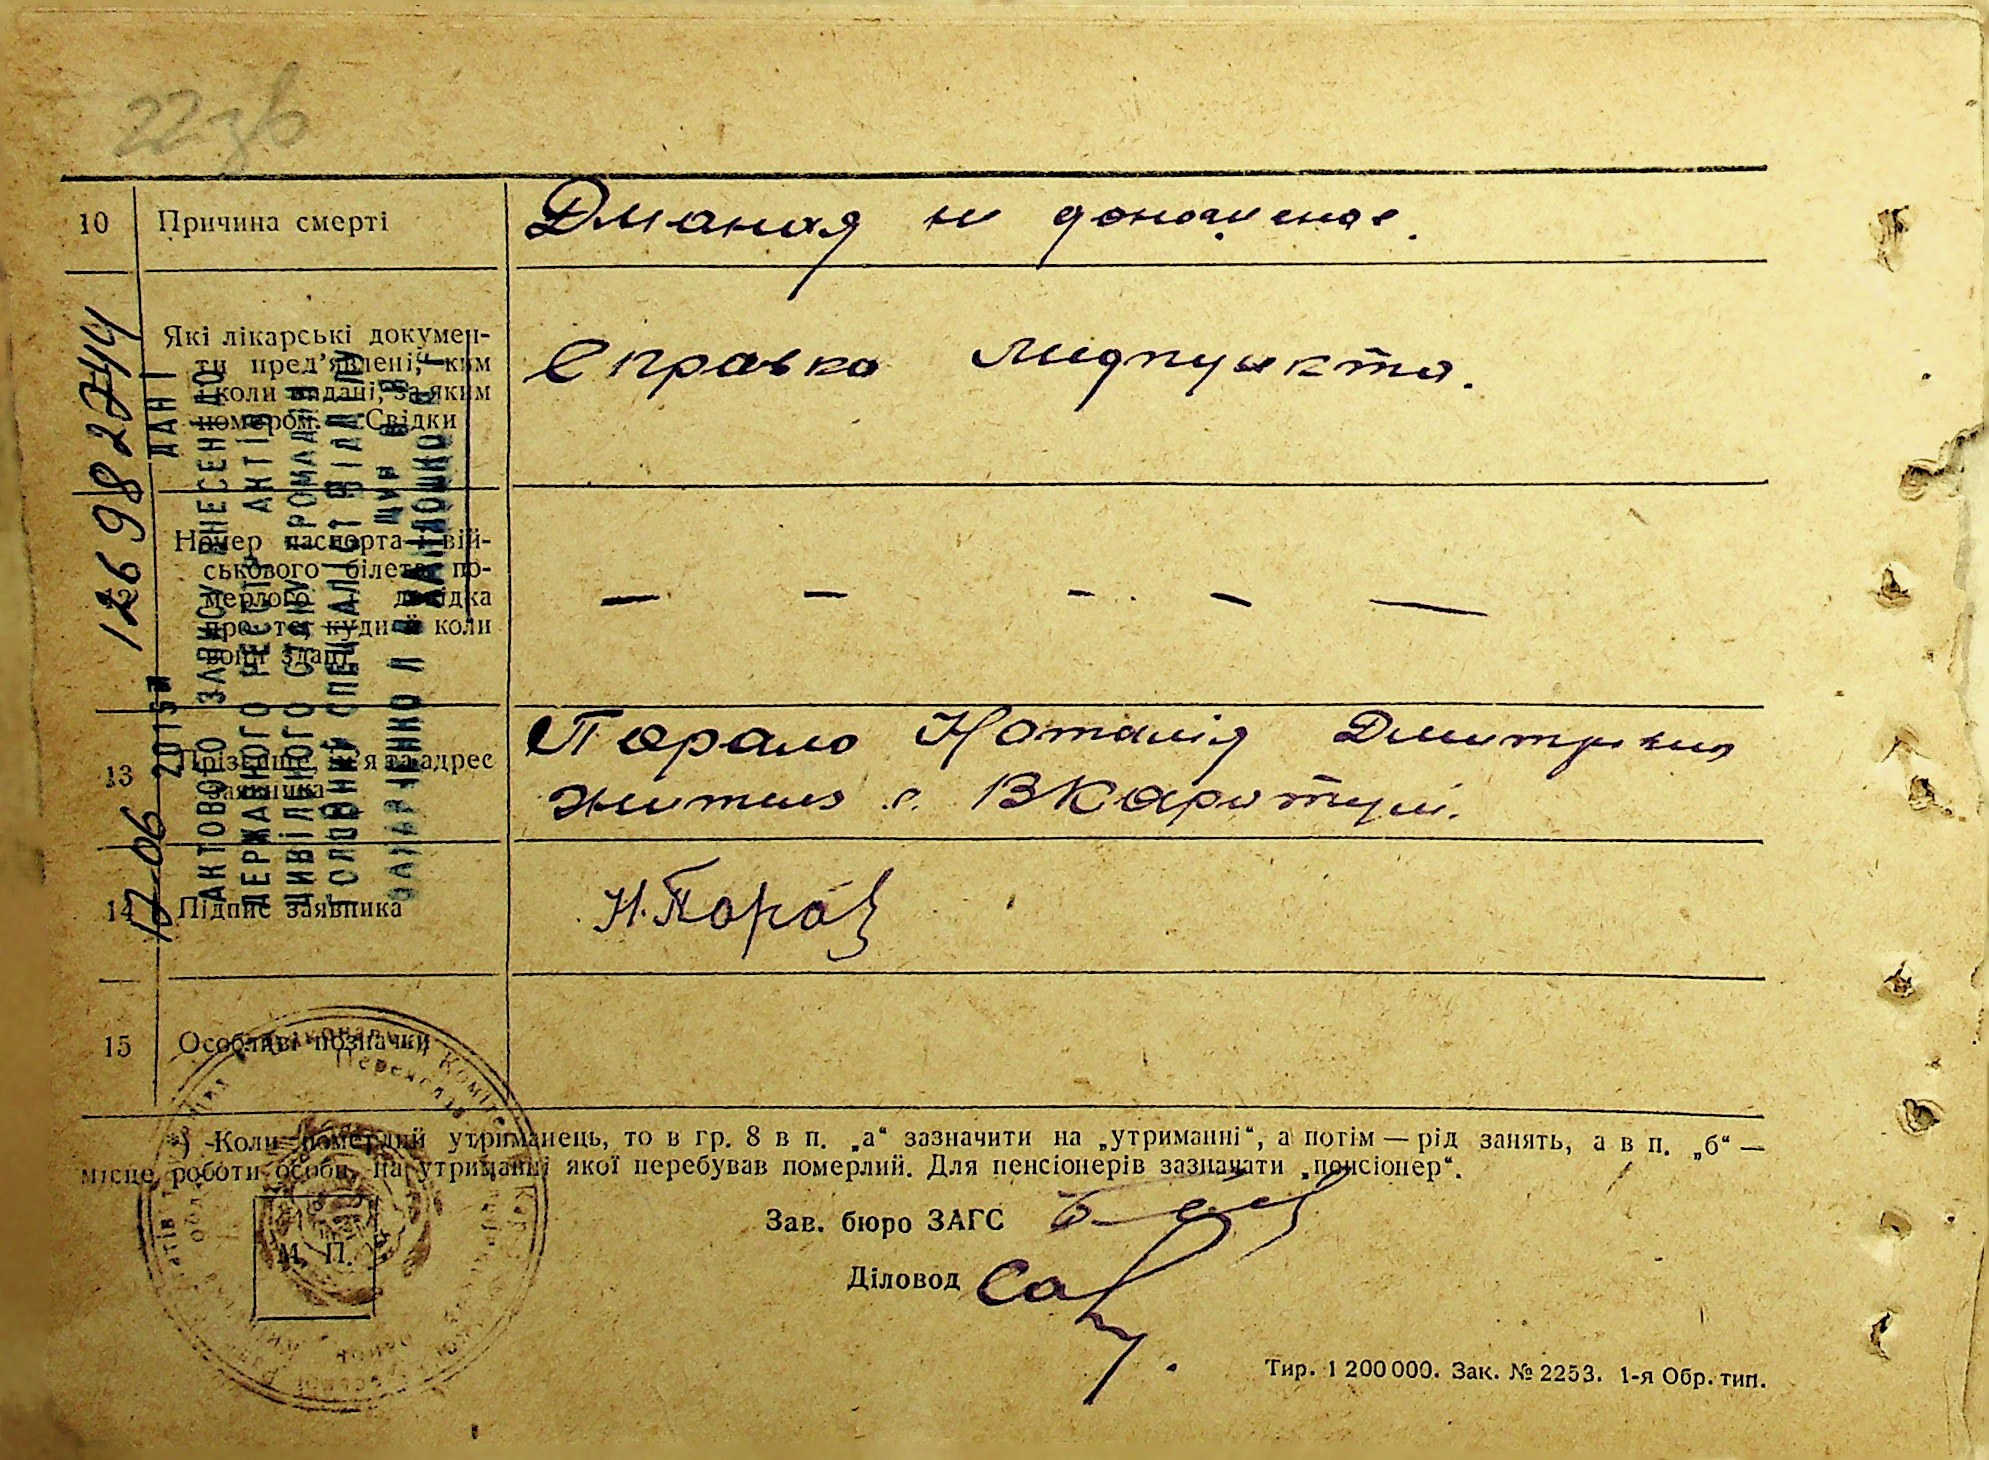 22зв
10 Причина смерті
Дманая не доношеное.
Які лікарські докумен-
ти пред'явлені, ким
і коли видані, за яким
номером. Свідки
Справка медпункта.
Номер паспорта і вій-
ськового білета по-
мерлого і довідка
про те, куди й коли
вони здані
— — - — —
13 Прізвище, ім'я та адрес
заявника
Парало Наталія Дмитрівна
жителька с. В Каратулі.
14 Підпис заявника
Н. Пара
15 Особливі позначки
*) Коли померлий утриманець, то в гр. 8 в п. „а“ зазначити на „утриманні“, а потім — рід занять, а в п. „б“ —
місце роботи особи, на утриманні якої перебував померлий. Для пенсіонерів зазначати „пенсіонер“.
Зав. бюро ЗАГС
Діловод
М. П.
Тир. 1 200 000. Зак. № 2253. 1-я Обр. тип.
12698274
ДАНІ
АКТОВОГО ЗАПИСУ ВНЕСЕНІ ДО
ДЕРЖАВНОГО РЕЄСТРУ АКТІВ
ЦИВІЛЬНОГО СТАНУ ГРОМАДЯН
ГОЛОВНИЙ СПЕЦІАЛІСТ ВІДДІЛУ
17 06 2015